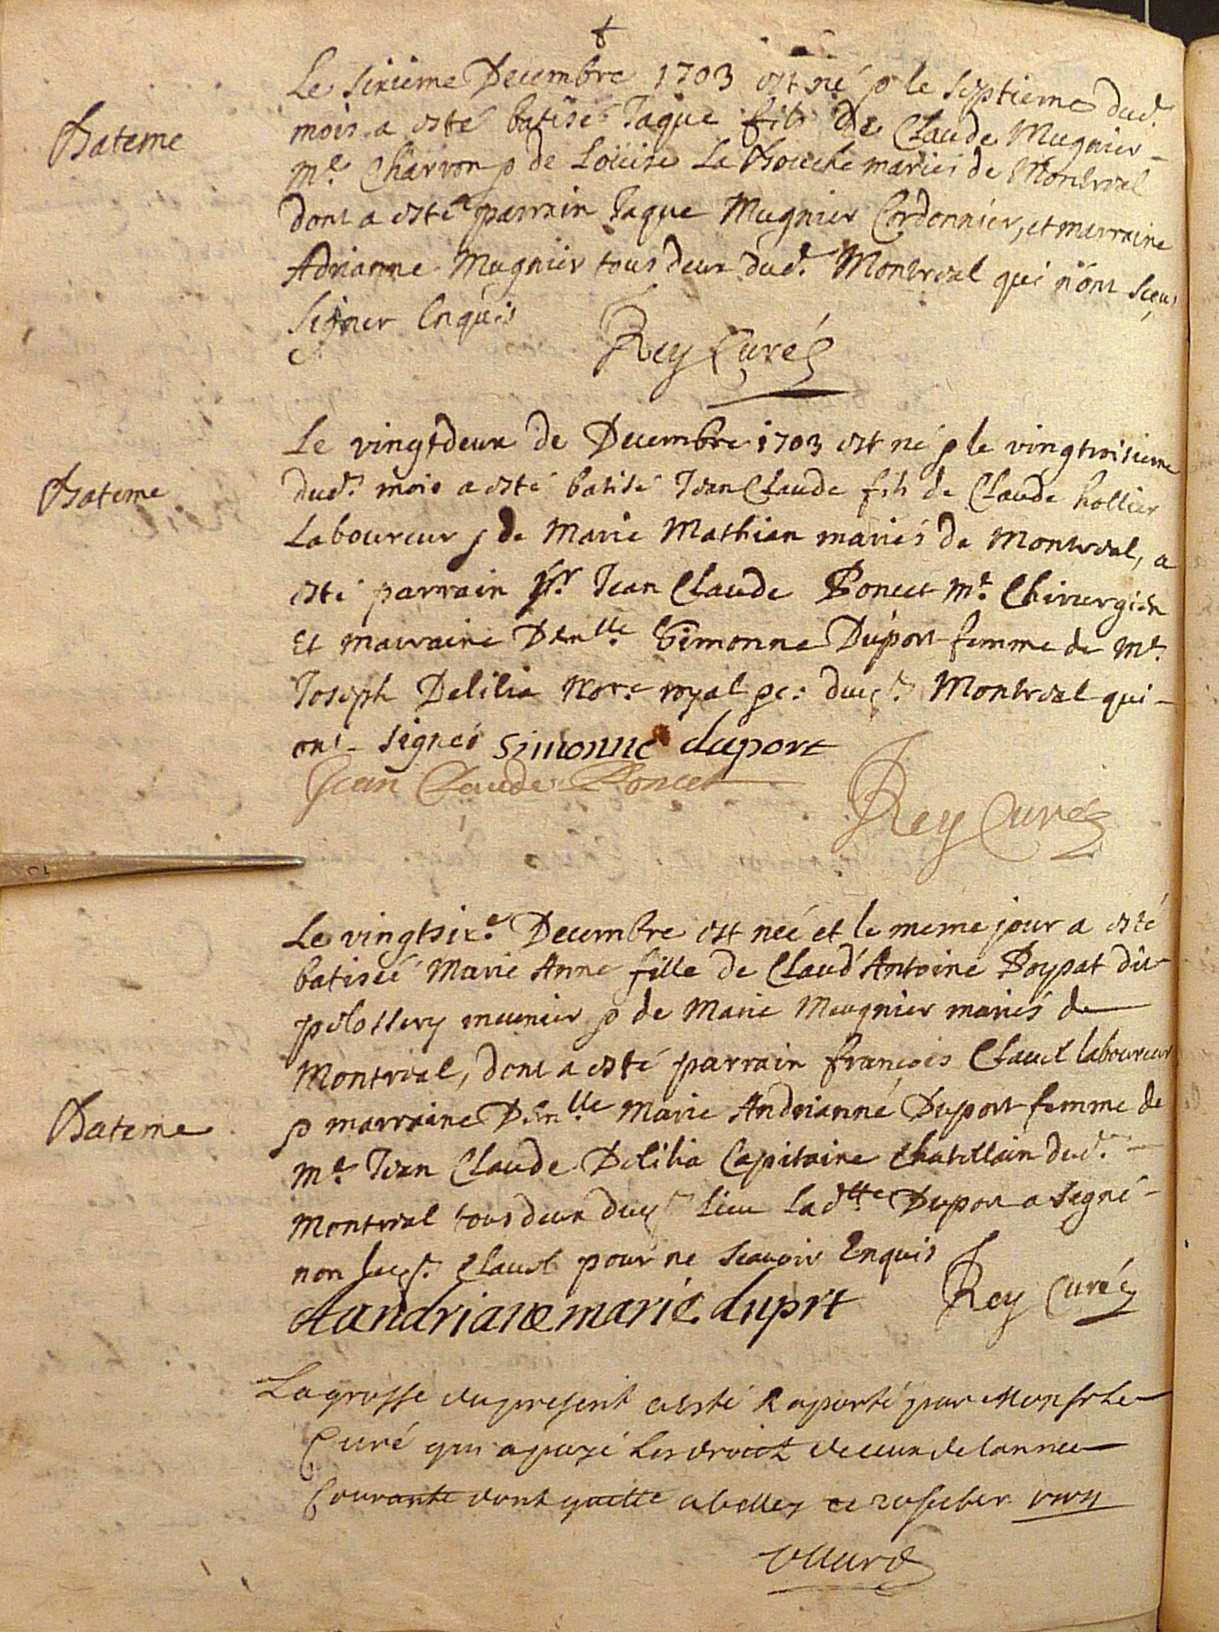 Le sixieme Decembre 1703 est né & le septieme dud.
Bateme
mois a esté batisé Jaque fils de Claude Mugnier
m.e Charron & de Loüise La Bouche mariés de Montreal
dont a esté parrain Jaque Mugnier Cordonnier, et marraine
Adrianne Mugnier tous deux dud. Montreal qui n'ont sçeu
signer Enquis
Rey Curé
Le vingtdeux de Decembre 1703 est né & le vingtroisieme
Bateme
dud. mois a esté batisé Jean Claude fils de Claude hollier
Laboureur & de Marie Mathian mariés de Montreal, a
esté parrain Sr. Jean Claude Poncet m.e Chirurgien
Et marraine Dem.lle Simonne Duport femme de m.e
Joseph Delilia Nore. royal de Montreal qui
ont signés Simonne duport
Jean Claude Poncet
Rey Curé
Le vingtsix.e Decembre est née et le meme jour a esté
batiseé Marie Anne fille de Claud'Antoine Poypat dit
pelossery meunier & de Marie Meugnier mariés de
Montreal, dont a esté parrain françois Claud laboureur
Bateme
& marraine Dem.lle Marie Andrianne Duport femme de
m.e Jean Claude Delilia Capitaine Chatellain dud.
Montreal tous deux dud. lieu lad.tte Duport a signé
non led. Claud pour ne scavoir Enquis
Aandriane marie duprt
Rey Curé
La grosse du present a esté Raporté par Monsr Le
Curé qui a payé les droict de ceux de l'annee
Courante dont quitte a belley ce